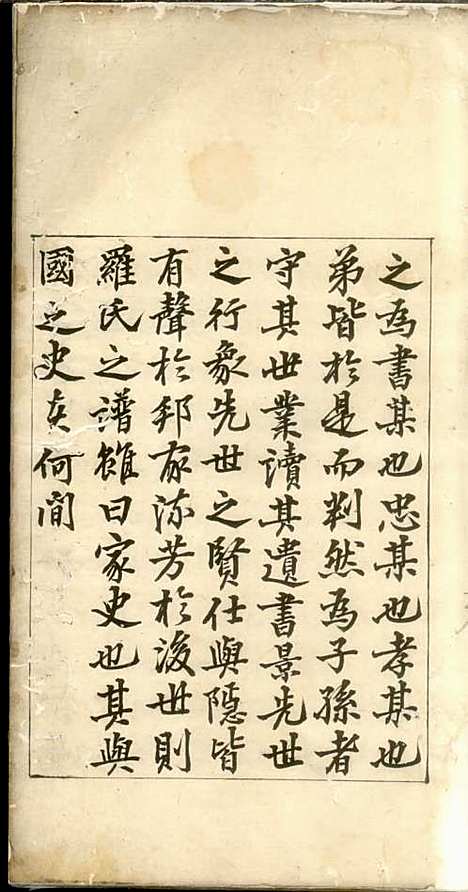 之為書某也忠某也孝某也
弟皆於是而判然為子孫者
守其世業讀其遺書景先世
之行象先世之賢仕與隱皆
有聲於邦家流芳於後世則
羅氏之譜雖曰家史也其與
國之史奚何間